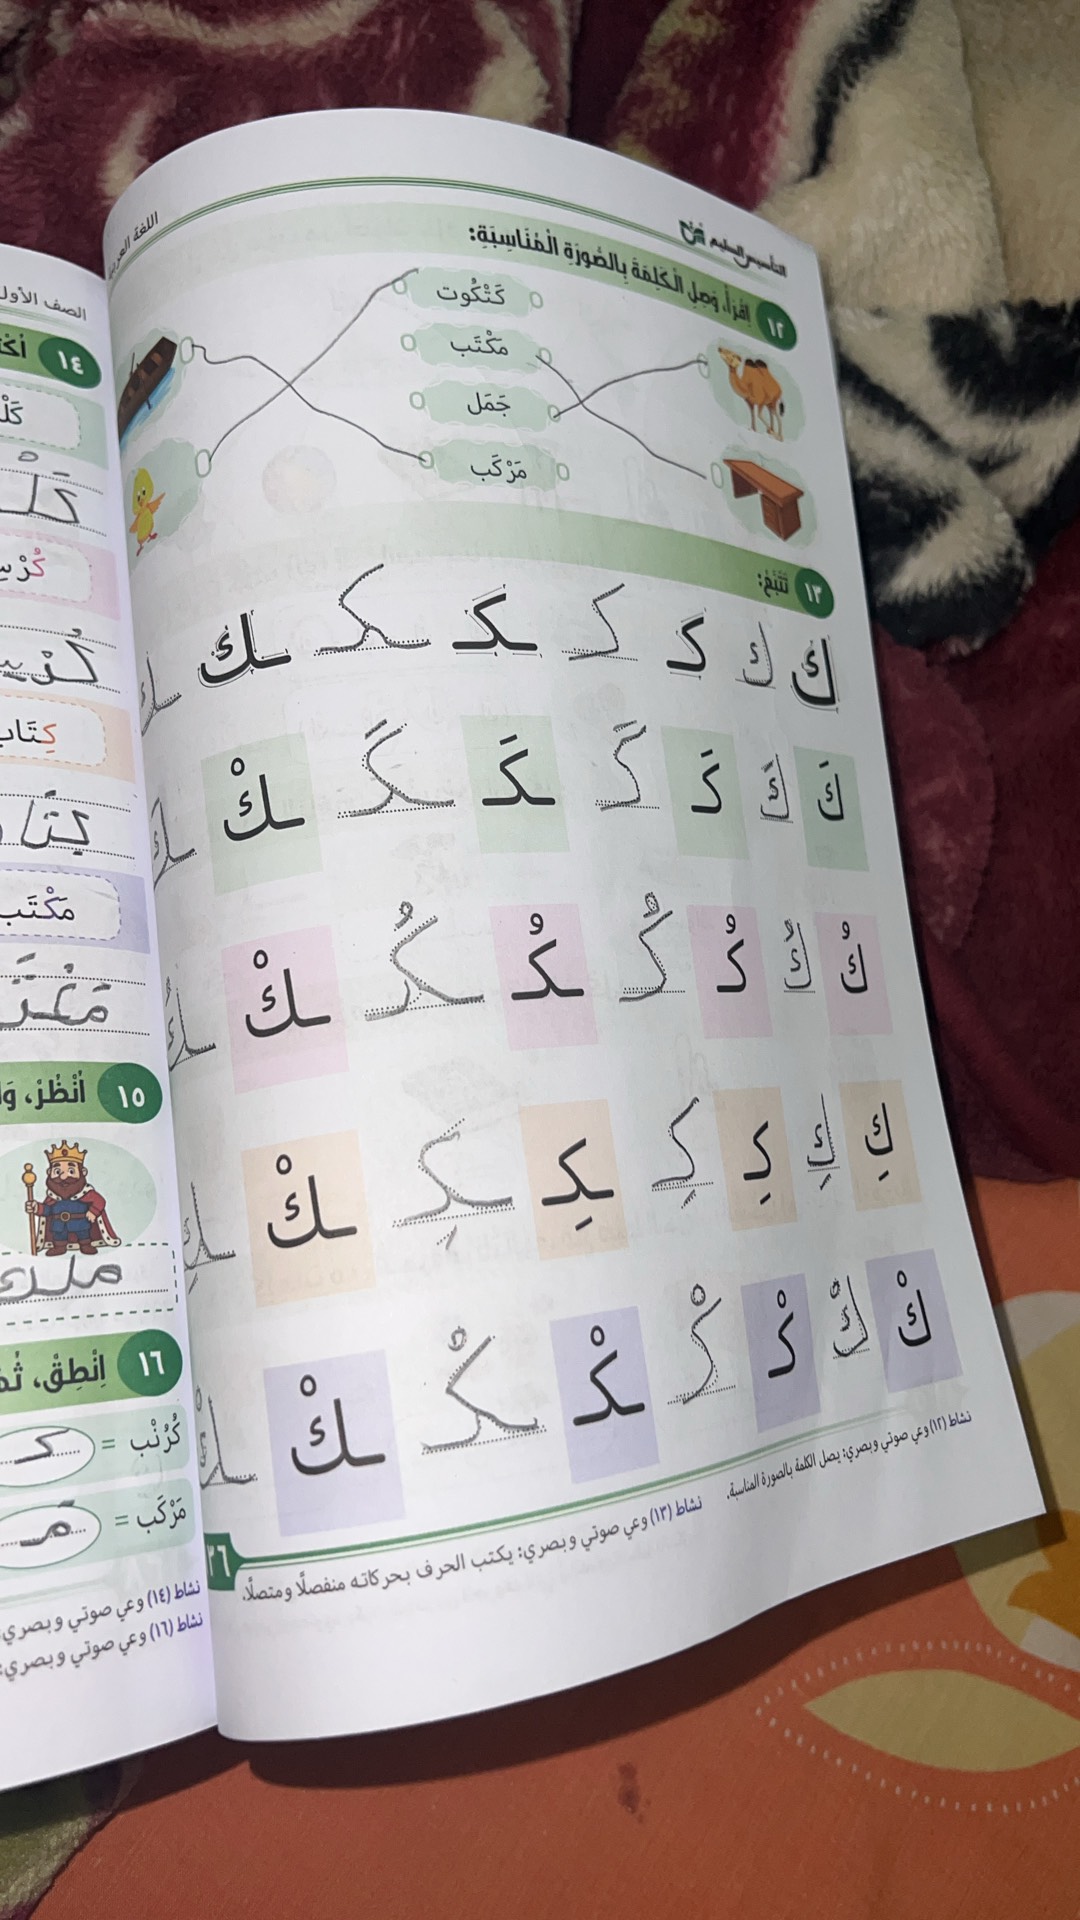 التأسيس السليم
١٢ اِقْرَأْ، وَصِلِ الْكَلِمَةَ بِالصُّورَةِ الْمُنَاسِبَةِ:
كَتْكُوت
مَكْتَب
جَمَل
مَرْكَب
١٣ تَتَبَّعْ:
ك ك كـ كـ ـكـ ـكـ ـك ـك
كَ كَ كَـ كَـ ـكَـ ـكَـ ـكْ ـكَ
كُ كُ كُـ كُـ ـكُـ ـكُـ ـكْ ـكُ
كِ كِ كِـ كِـ ـكِـ ـكِـ ـكْ ـكِ
كْ كْ كْـ كْـ ـكْـ ـكْـ ـكْ ـكْ
نشاط (١٢) وعي صوتي وبصري: يصل الكلمة بالصورة المناسبة.
نشاط (١٣) وعي صوتي وبصري: يكتب الحرف بحركاته منفصلًا ومتصلًا.
٢٦
الصف الأول
١٤
مَكْتَب
١٥ اُنْظُرْ،
ملك
١٦ اِنْطِقْ،
كُرُنْب = كـ
مَرْكَب = مَـ
نشاط (١٤) وعي صوتي وبصري:
نشاط (١٦) وعي صوتي وبصري: